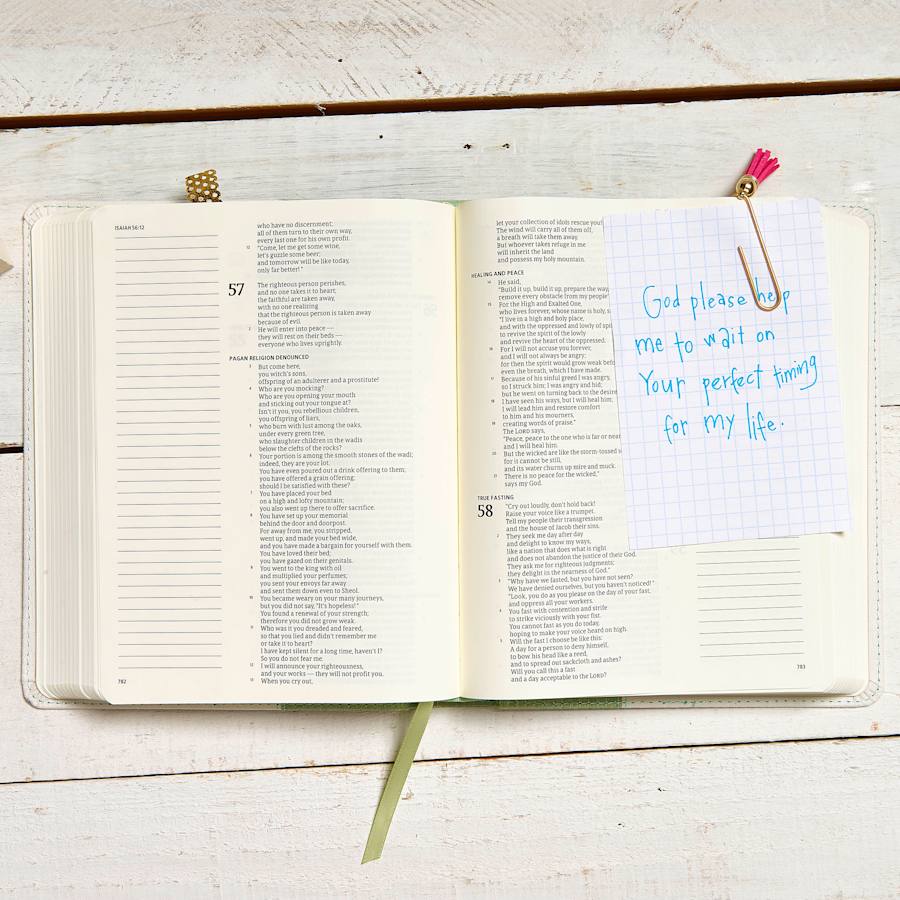 ISAIAH 56:12
who have no discernment;
all of them turn to their own way,
every last one for his own profit.
12 "Come, let me get some wine,
let's guzzle some beer;
and tomorrow will be like today,
only far better!"
57 The righteous person perishes,
and no one takes it to heart;
the faithful are taken away,
with no one realizing
that the righteous person is taken away
because of evil.
2 He will enter into peace —
they will rest on their beds —
everyone who lives uprightly.
PAGAN RELIGION DENOUNCED
3 But come here,
you witch's sons,
offspring of an adulterer and a prostitute!
4 Who are you mocking?
Who are you opening your mouth
and sticking out your tongue at?
Isn't it you, you rebellious children,
you offspring of liars,
5 who burn with lust among the oaks,
under every green tree,
who slaughter children in the wadis
below the clefts of the rocks?
6 Your portion is among the smooth stones of the wadi;
indeed, they are your lot.
You have even poured out a drink offering to them;
you have offered a grain offering;
should I be satisfied with these?
7 You have placed your bed
on a high and lofty mountain;
you also went up there to offer sacrifice.
8 You have set up your memorial
behind the door and doorpost.
For away from me, you stripped,
went up, and made your bed wide,
and you have made a bargain for yourself with them.
You have loved their bed;
you have gazed on their genitals.
9 You went to the king with oil
and multiplied your perfumes;
you sent your envoys far away
and sent them down even to Sheol.
10 You became weary on your many journeys,
but you did not say, "It's hopeless!"
You found a renewal of your strength;
therefore you did not grow weak.
11 Who was it you dreaded and feared,
so that you lied and didn't remember me
or take it to heart?
I have kept silent for a long time, haven't I?
So you do not fear me.
12 I will announce your righteousness,
and your works — they will not profit you.
13 When you cry out,
782
let your collection of idols rescue you!
The wind will carry all of them off,
a breath will take them away.
But whoever takes refuge in me
will inherit the land
and possess my holy mountain.
HEALING AND PEACE
14 He said,
"Build it up, build it up, prepare the way,
remove every obstacle from my people's
15 For the High and Exalted One,
who lives forever, whose name is holy, s
"I live in a high and holy place,
and with the oppressed and lowly of spi
to revive the spirit of the lowly
and revive the heart of the oppressed.
16 For I will not accuse you forever,
and I will not always be angry;
for then the spirit would grow weak befo
even the breath, which I have made.
17 Because of his sinful greed I was angry,
so I struck him; I was angry and hid;
but he went on turning back to the desire
18 I have seen his ways, but I will heal him;
I will lead him and restore comfort
to him and his mourners,
19 creating words of praise."
The LORD says,
"Peace, peace to the one who is far or near
and I will heal him.
20 But the wicked are like the storm-tossed s
for it cannot be still,
and its water churns up mire and muck.
21 There is no peace for the wicked,"
says my God.
TRUE FASTING
58 "Cry out loudly, don't hold back!
Raise your voice like a trumpet.
Tell my people their transgression
and the house of Jacob their sins.
2 They seek me day after day
and delight to know my ways,
like a nation that does what is right
and does not abandon the justice of their God.
They ask me for righteous judgments;
they delight in the nearness of God."
3 "Why have we fasted, but you have not seen?
We have denied ourselves, but you haven't noticed!"
"Look, you do as you please on the day of your fast,
and oppress all your workers.
4 You fast with contention and strife
to strike viciously with your fist.
You cannot fast as you do today,
hoping to make your voice heard on high.
5 Will the fast I choose be like this:
A day for a person to deny himself,
to bow his head like a reed,
and to spread out sackcloth and ashes?
Will you call this a fast
and a day acceptable to the LORD?
783
God please help
me to wait on
Your perfect timing
for my life.